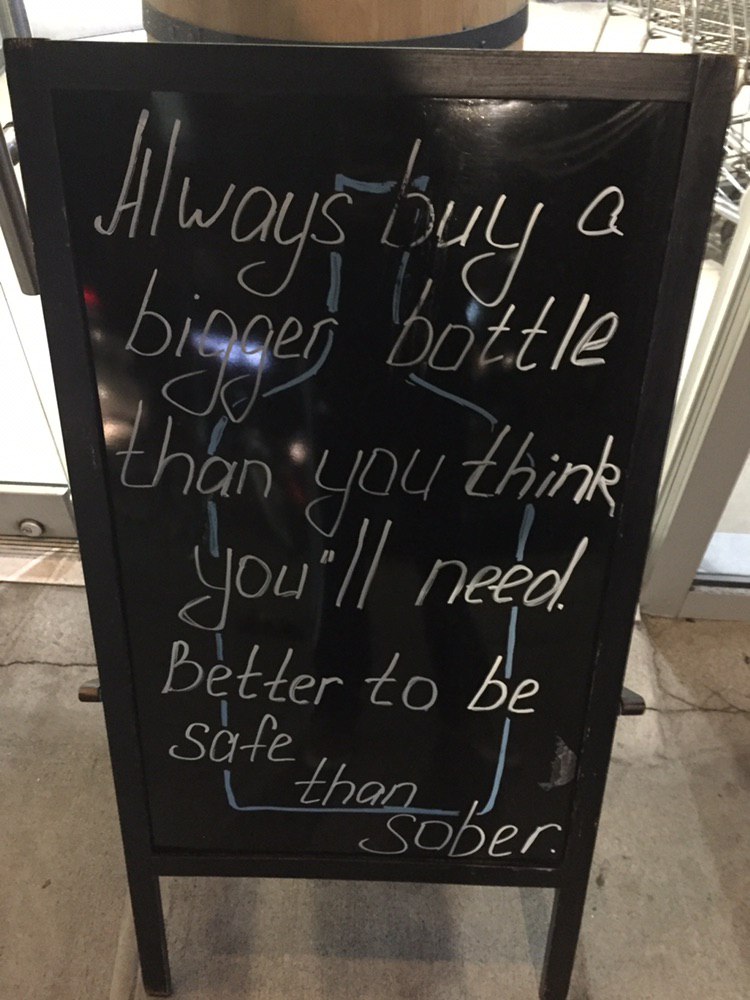 Always buy a
bigger bottle
than you think
you"ll need.
Better to be
safe
than
sober.